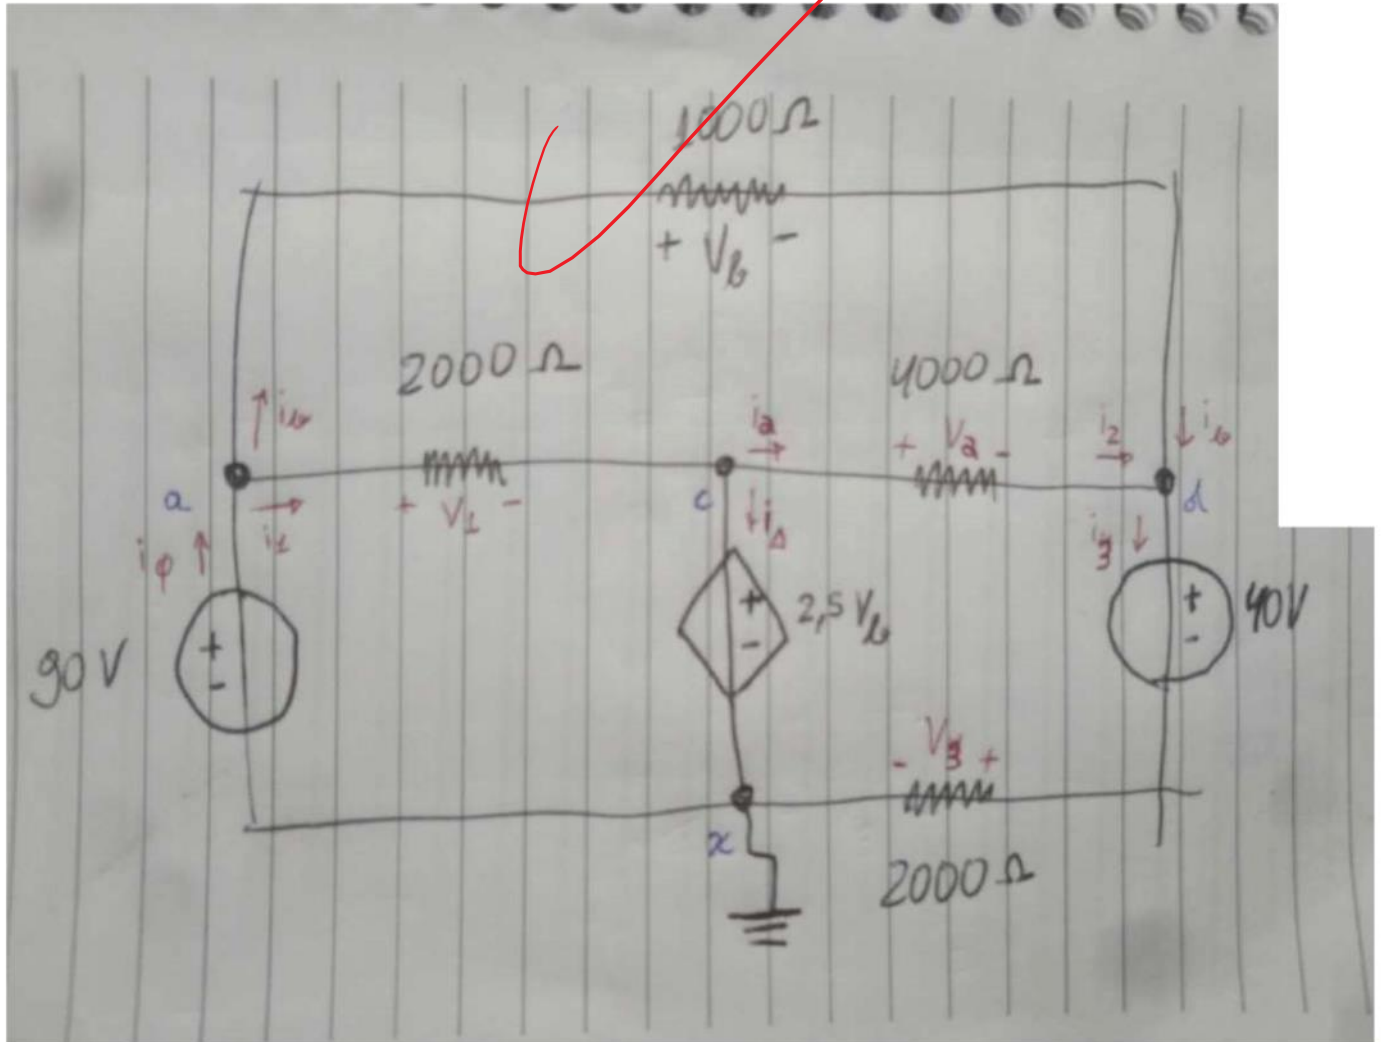 1000Ω
+ V_b -
2000Ω
4000Ω
i_b
i_a
+ V_a -
i_2
i_b
a
i_1
+ V_1 -
c
i_Δ
d
i_φ
i_3
90V
+
-
+
-
2,5 V_b
+
-
40V
- V_3 +
x
2000Ω